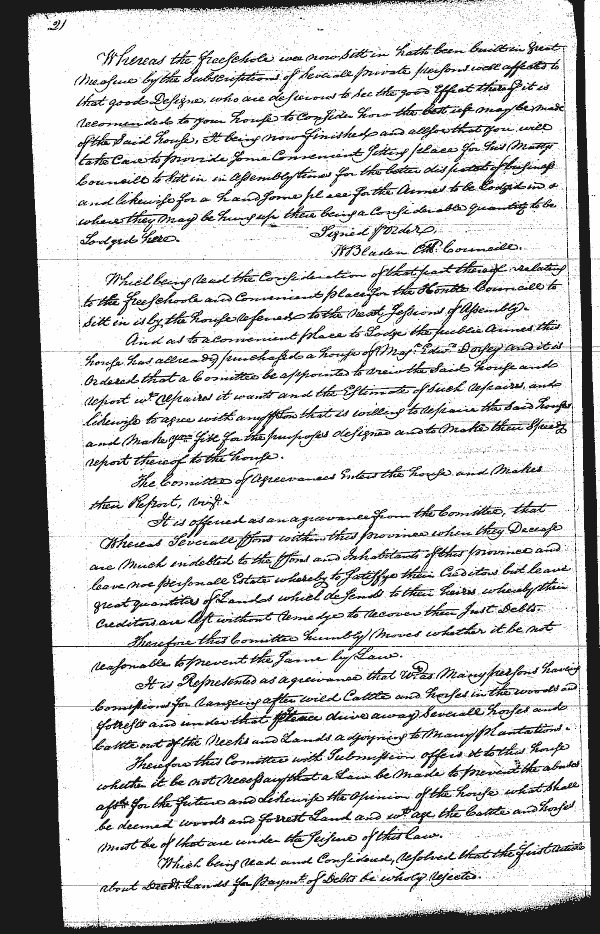 21
Whereas the freeschole wee now Sitt in hath been built in great
Measure by the Subscriptions of Severall private persons well affected to
that good Designe, who are desireous to See the good Effect thereof it is
recomended to your house to Consider how the best use may be made
of the Said house, It being now finished and allsoe that you will
take Care to provide Some Convenient Sitting place for his Matys
Councill to Sitt in in Assembly times for the better dispatch of business
and likewise for a handsome place for the Armes to be Lodged in &
where they may be hung up there being a Considerable quantity to be
Lodged here.
Signed p Order,
WBladen Cl Councill.
Which being read the Consideration of that part thereof relating
to the freeschoole and Convenient place for the Honble Councill to
Sitt in is by the house referred to the next Sessions of Assembly.
And as to a convenient place to Lodge the publick Armes this
house has allready purchased a house of Majr. Edwd. Dorsey and it is
Ordered that a Comittee be appointed to view the Said house and
report wt. repaires it wants and the Estimate of Such repaires, and
likewise to agree with any pson that is willing to repaire the said house
and Make ym fitt for the purposes designed and to Make their Speedy
report thereof to the house.
The Comittee of Agreevances Enters the house and Makes
their Report, vizt.
It is offered as an agrievance from the Comittee, that
Whereas Severall psons within this province when they Decease
are Much indebted to the psons and Inhabitants of this province and
leave noe personall Estate whereby to Satisfye their Creditors but leave
great quantities of Lands which desends to their heires whereby their
Creditors are left without remedye to recover their Just Debts.
Therefore this Comittee humbly Moves whether it be not
reasonable to prevent the Same by Law.
It is Represented as agrievance that as Many persons having
Comissions for rangeing after wild Cattle and horses in the woods and
forrests and under that drive away Severall horses and
Cattle out of the Necks and Lands adjoyning to Many plantations.
Therefore this Comittee with Submission offers it to this house
whether it be not Necessary that a Law be Made to prevent the abuses
afsd. for the future and Likewise the Opinion of the house what Shall
be deemed woods and forrest Land and wt. age the Cattle and horses
must be of that are under the Seisure of this Law.
Which being read and Considered, resolved that the first article
about Decd. Lands for paymt. of Debts be wholy rejected.